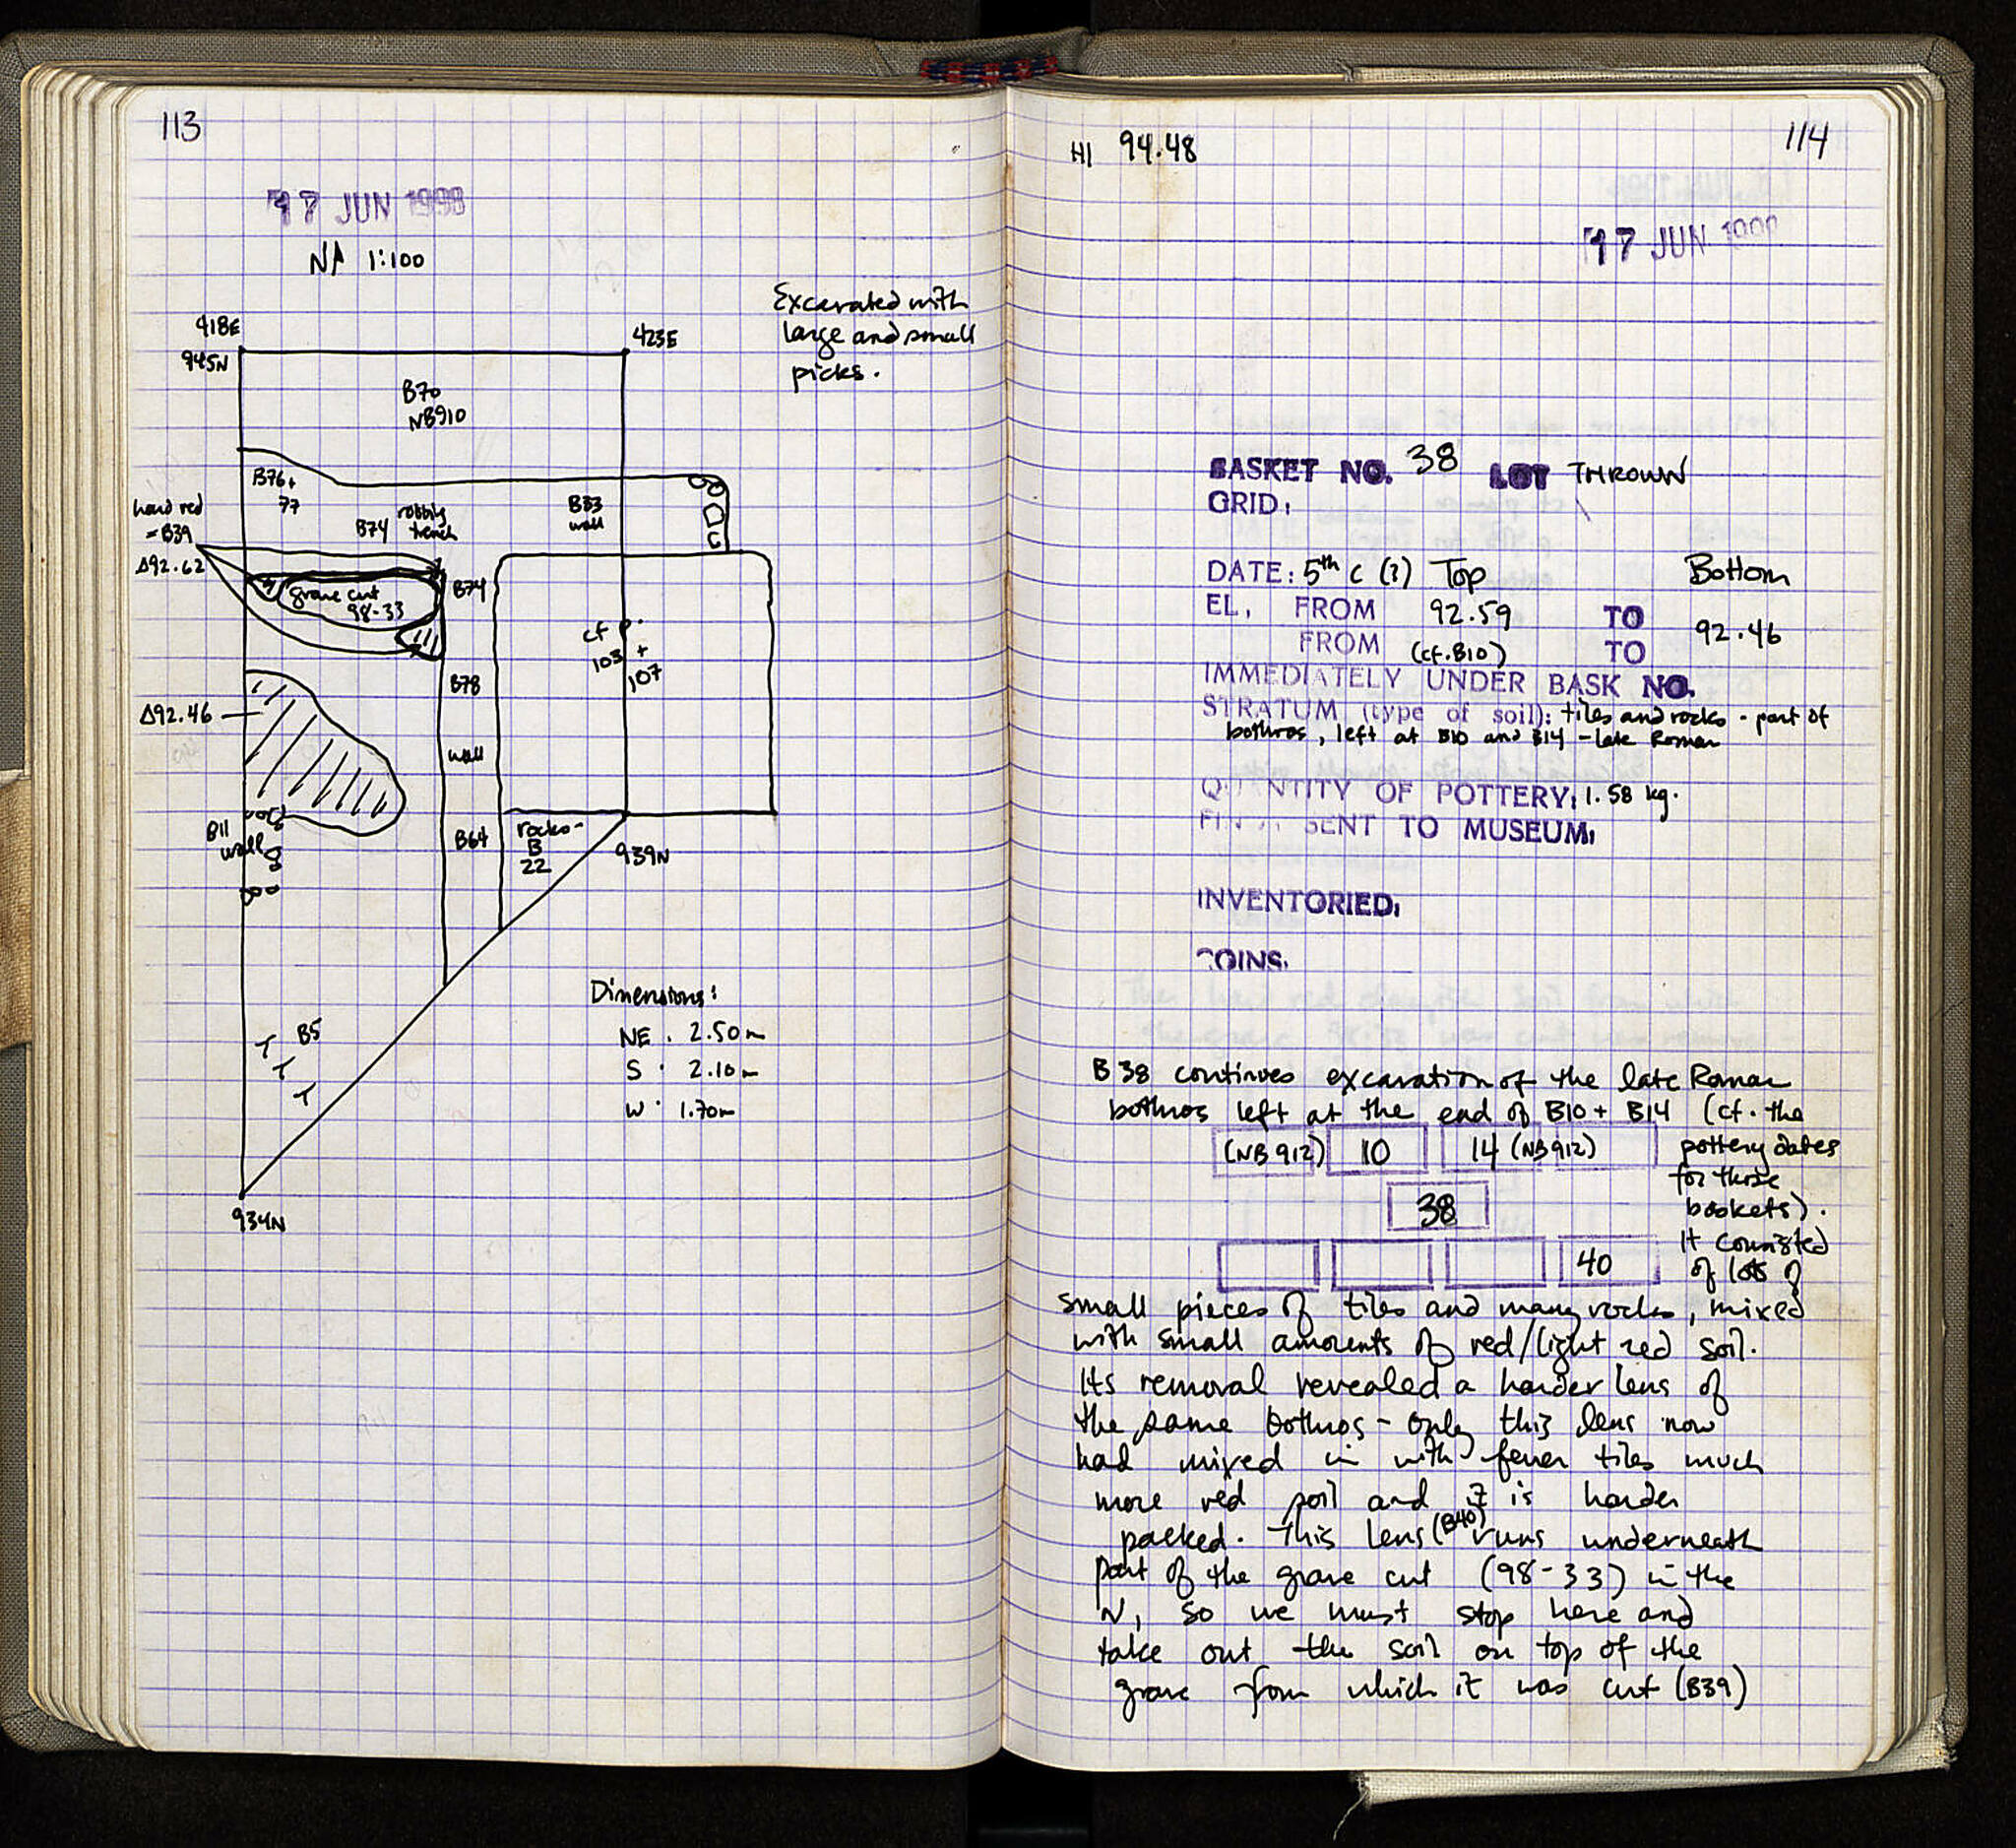 113
17 JUN 1998
N 1:100
Excavated with
large and small
picks.
418E
423E
945N
B70
NB910
B76+
77
hard red
=B39
Δ92.62
B74
robbing
trench
B33
wall
grave cut
98-33
B74
cf p.
103 +
107
B78
Δ92.46
wall
B11
wall
B64
rocks-
B
22
939N
B5
934N
Dimensions:
NE . 2.50m
S . 2.10m
W . 1.70m
HI 94.48
114
17 JUN
BASKET NO. 38 LOT THROWN
GRID:
DATE: 5th c (?) Top Bottom
EL, FROM 92.59 TO 92.46
FROM (cf. B10) TO
IMMEDIATELY UNDER BASK NO.
STRATUM (type of soil): tiles and rocks - part of
bothros, left at B10 and B14 - late Roman
QUANTITY OF POTTERY: 1.58 kg.
SENT TO MUSEUM:
INVENTORIED:
COINS:
B38 continues excavation of the late Roman
bothros left at the end of B10 + B14 (cf. the
(NB 912) 10 14 (NB912) pottery dates
for those
38 baskets).
It consisted
40 of lots of
small pieces of tiles and many rocks, mixed
with small amounts of red/light red soil.
Its removal revealed a harder lens of
the same bothros - only this lens now
had mixed in with fewer tiles much
more red soil and it is harder
packed. This lens (B40) runs underneath
part of the grave cut (98-33) in the
N, so we must stop here and
take out the soil on top of the
grave from which it was cut (B39)